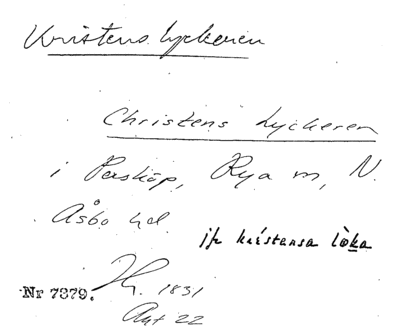 Kristens Lyckeren
Christens Lyckeren
i Perstorp, Rya sn, N.
Åsbo hd.
jfr kréstensa lø̀ka
Nr 7379. Hy. 1831
Akt 22